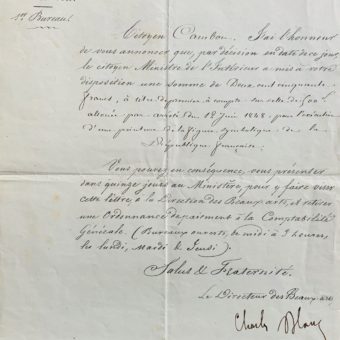 1er Bureau
Citoyen Cambon, J'ai l'honneur
de vous annoncer que, par décision en date de ce jour,
le citoyen Ministre de l'Intérieur a mis à votre
disposition une somme de Deux cent cinquante
francs, à titre de premier à compte sur celle de 500f
allouée par arrêté du 12 Juin 1848, pour l'exécution
d'une peinture de la figure symbolique de la
République française.
Vous pouvez en conséquence, vous présenter
dans quinze jours au Ministère pour y faire viser
cette lettre, à la Direction des Beaux-arts, et retirer
une Ordonnance de paiement à la Comptabilité
Générale (Bureaux ouverts, de midi à 3 heures,
les lundi, Mardi & Jeudi).
Salut & Fraternité.
Le Directeur des Beaux-arts
Charles Blanc